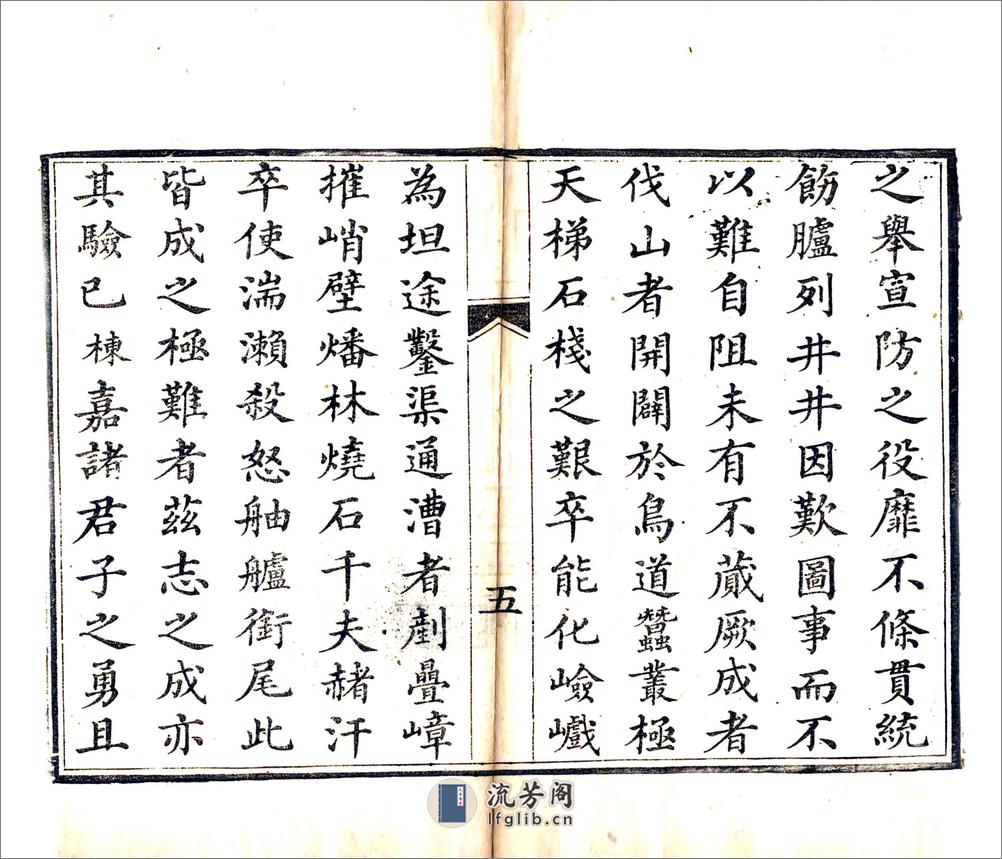 之舉宣防之役靡不條貫統
飭臚列井井因歎圖事而不
以難自阻未有不蕆厥成者
伐山者開闢於鳥道蠶叢極
天梯石棧之艱卒能化嶮巇
五
為坦途鑿渠通漕者剷疊嶂
摧峭壁燔林燒石千夫赭汗
卒使湍瀨殺怒舳艫銜尾此
皆成之極難者茲志之成亦
其驗已棟嘉諸君子之勇且
流芳阁
lfglib.cn